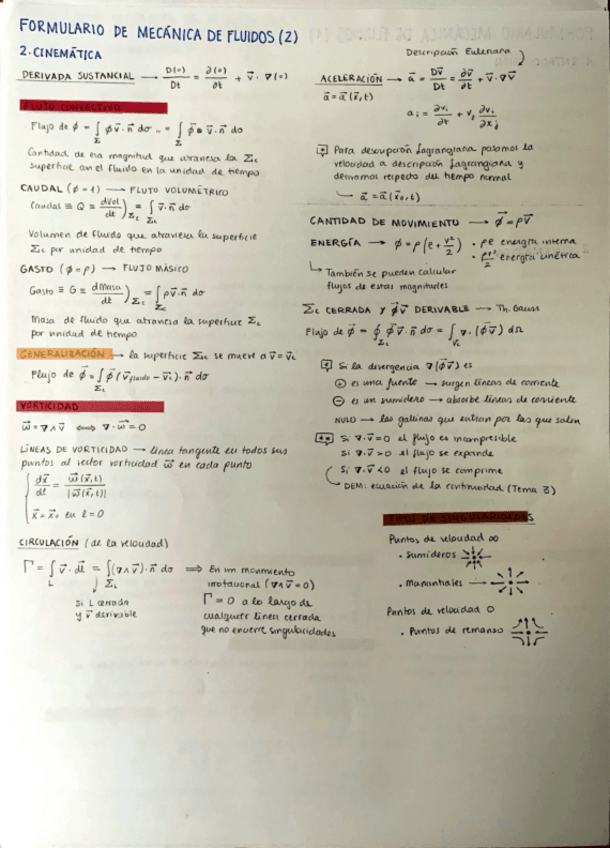 FORMULARIO DE MECÁNICA DE FLUIDOS (2)
2. CINEMÁTICA
DERIVADA SUSTANCIAL → D(∘)/Dt = ∂(∘)/∂t + v⃗ · ∇(∘)
FLUJO CONVECTIVO
Flujo de ϕ = ∫_Σ ϕ v⃗ · n⃗ dσ
Cantidad de esa magnitud que atraviesa la Σc
superficie con el fluido en la unidad de tiempo
CAUDAL (ϕ = 1) → FLUJO VOLUMÉTRICO
Caudal ≡ Q ≡ dVol/dt)_Σc = ∫_Σc v⃗ · n⃗ dσ
Volumen de fluido que atraviesa la superficie
Σc por unidad de tiempo
GASTO (ϕ = ρ) → FLUJO MÁSICO
Gasto ≡ G ≡ dMasa/dt)_Σc = ∫_Σc ρ v⃗ · n⃗ dσ
Masa de fluido que atraviesa la superficie Σc
por unidad de tiempo
GENERALIZACIÓN → la superficie Σc se mueve a v⃗ = v⃗c
Flujo de ϕ⃗ = ∫_Σc ϕ⃗ (v⃗fluido − v⃗c) · n⃗ dσ
VORTICIDAD
ω⃗ = ∇ ∧ v⃗ ⟺ ∇ · ω⃗ = 0
LÍNEAS DE VORTICIDAD → línea tangente en todos sus
puntos al vector vorticidad ω⃗ en cada punto
{ dx⃗/dl = ω⃗(x⃗,t)/|ω⃗(x⃗,t)|
x⃗ = x⃗₀ en l = 0
CIRCULACIÓN (de la velocidad)
Γ = ∫_L v⃗ · dl⃗ = ∫_Σc (∇ ∧ v⃗) · n⃗ dσ ⟹ En un movimiento
irrotacional (∇ ∧ v⃗ = 0)
Γ = 0 a lo largo de
cualquier línea cerrada
que no encierre singularidades
Si L cerrada
y v⃗ derivable
Descripción Euleriana
ACELERACIÓN → a⃗ = Dv⃗/Dt = ∂v⃗/∂t + v⃗ · ∇v⃗
a⃗ = a⃗(x⃗,t)
aᵢ = ∂vᵢ/∂t + vⱼ ∂vᵢ/∂xⱼ
Para descripción Lagrangiana pasamos la
velocidad a descripción Lagrangiana y
derivamos respecto del tiempo normal
→ a⃗ = a⃗(x⃗₀,t)
CANTIDAD DE MOVIMIENTO → ϕ⃗ = ρv⃗
ENERGÍA → ϕ = ρ(e + v²/2) • ρe energía interna
• ρv²/2 energía cinética
→ También se pueden calcular
flujos de estas magnitudes
Σc CERRADA Y ϕ⃗v⃗ DERIVABLE → Th. Gauss
Flujo de ϕ⃗ = ∮_Σc ϕ⃗ v⃗ · n⃗ dσ = ∫_Vc ∇ · (ϕ⃗v⃗) dΩ
Si la divergencia ∇(ϕ⃗v⃗) es
⊕ es una fuente → surgen líneas de corriente
⊖ es un sumidero → absorbe líneas de corriente
NULO → las gallinas que entran por las que salen
Si ∇ · v⃗ = 0 el flujo es incompresible
Si ∇ · v⃗ > 0 el flujo se expande
Si ∇ · v⃗ < 0 el flujo se comprime
→ DEM: ecuación de la continuidad (Tema 3)
TIPOS DE SINGULARIDADES
Puntos de velocidad ∞
• Sumideros
• Manantiales →
Puntos de velocidad 0
• Puntos de remanso